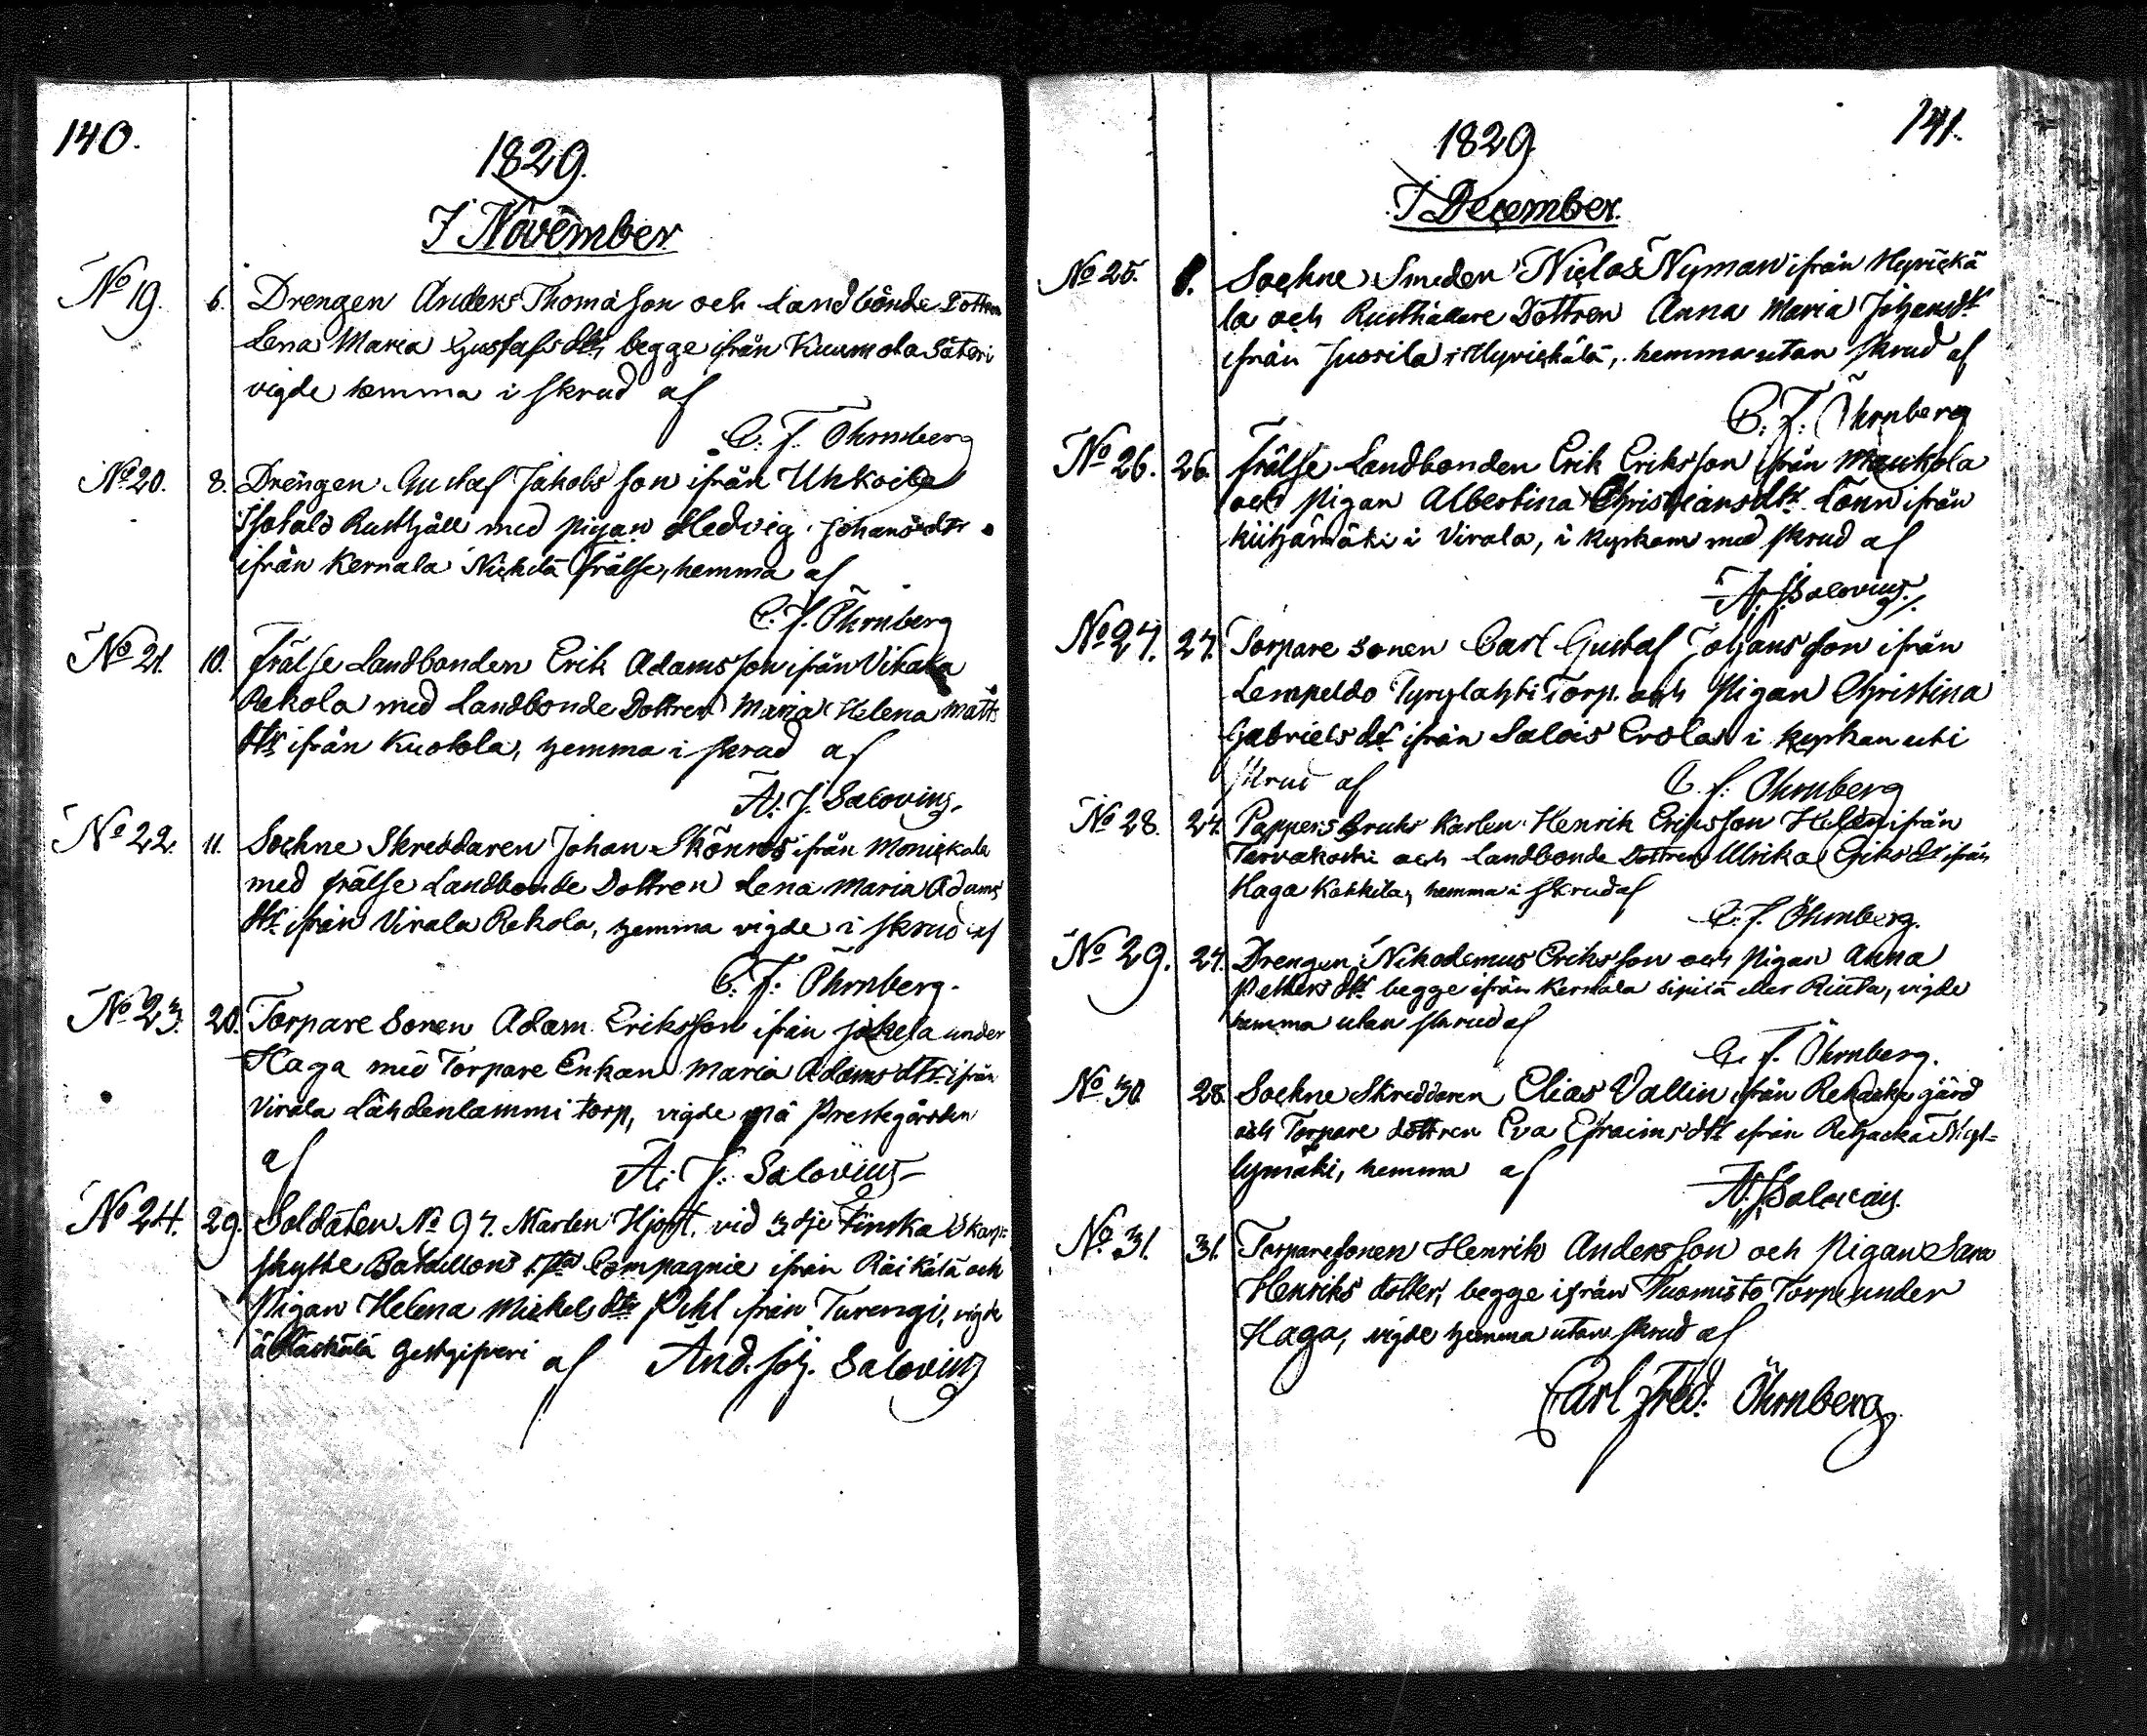 140.
1829.
I November
No 19. 6. Drengen Anders Thomasson och Landbonde Dottren
Lena Maria Gustafsdtr begge ifrån Kuumola Säteri
vigde hemma i skrud af
C. F. Öhrnberg
No 20. 8. Drengen Gustaf Jakobsson ifrån Uhkoila
Isotalo Rusthåll med Pigan Hedvig Johansdtr
ifrån Kernala Nickilä frälse, hemma af
C. F. Öhrnberg
No 21. 10. Frälse Landbonden Erik Adamsson ifrån
Rekola med Landbonde Dottren Maria Helena Matts
dtr ifrån Kuotola, hemma i skrud af
A. J. Salovius.
No 22. 11. Sockne Skreddaren Johan Skönros ifrån Monickala
med frälse Landbonde Dottren Lena Maria Adams
dtr ifrån Virala Rekola, hemma vigde i skrud af
C. F. Öhrnberg.
No 23. 20. Torpare Sonen Adam Eriksson ifrån Jokela under
Haga med Torpare Enkan Maria Adamsdtr ifrån
Virala Lähdenlammi torp, vigde på Prestegården
af
A. J. Salovius
No 24. 29. Soldaten No 97. Marten Hjort, vid 3dje Finska Skarp-
skytte Bataillons 1sta Compagnie ifrån Räikälä och
Pigan Helena Mickelsdtr Pihl ifrån Turengi, vigde
å Gestgifveri af And. Joh. Salovius
141.
1829
I December.
No 25. 8. Sockne Smeden Niclas Nyman ifrån Myrickä
la och Rusthållare Dottren Anna Maria Johansdtr
ifrån Jussila i Myrickälä, hemma utan skrud af
C. F. Öhrnberg
No 26. 26. Frälse Landbonden Erik Eriksson ifrån Maukola
och Pigan Albertina Christiansdtr Lönn ifrån
i Virala, i kyrkan med skrud af
A. J. Salovius.
No 27. 27. Torpare Sonen Carl Gustaf Johansson ifrån
Lempeldo Tyrylahti Torp. och Pigan Christina
Gabrielsdtr ifrån Salois Erola i kyrkan uti
skrud af C. F. Öhrnberg
No 28. 27. Pappersbruks Karlen Henrik Eriksson Helén ifrån
Tervakoski och Landbonde Dottren Ulrika Eriksdtr ifrån
Haga Kakkila, hemma i skrud af
C. F. Öhrnberg.
No 29. 27. Drengen Nikodemus Eriksson och Pigan Anna
Pettersdtr begge ifrån Kernala Sipilä eller Riuta, vigde
hemma utan skrud af
C. F. Öhrnberg.
No 30 28 Sockne Skreddaren Elias Vallin ifrån gård
och Torpare dottren Eva Efraimsdtr ifrån Rehacka
lymäki, hemma af
A. J. Salovius.
No. 31. 31. Torparesonen Henrik Andersson och Pigan Sara
Henriks dotter, begge ifrån Tuomisto Torp under
Haga, vigde hemma utan skrud af
Carl Fred: Öhrnberg